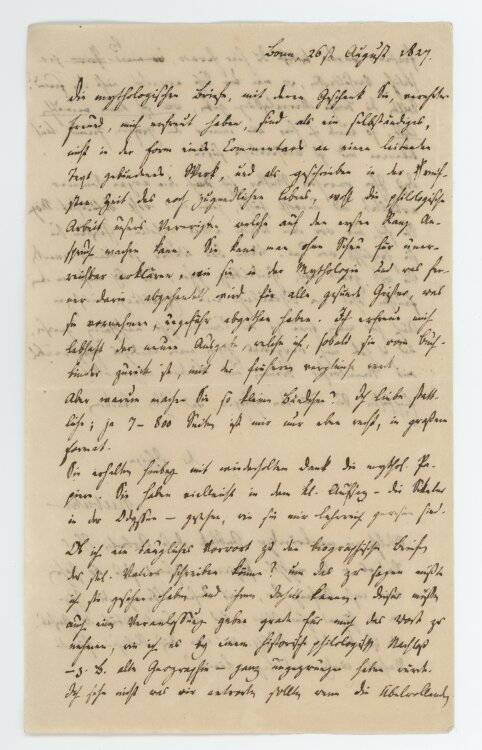 Bonn, 26st August 1827.
Die mythologischen Briefe, mit deren Geschenk Sie, verehrter
Freund, mich erfreut haben, sind als ein selbständiges,
nicht in der Form eines Commentars an einen leitenden
Text gebundenes, Werk, und als geschrieben in der
Zeit des noch jugendlichen Lebens, wohl die philologische
Arbeit unsers Verewigten welche auf den ersten Rang An-
spruch machen kann. Sie kann man ohne Scheu für uner-
reichbar erklären, wie sie in der Mythologie und was fer-
ner darin abgehandelt wird für alle gesunde Geister, was
sie vornehmen, ungefähr abgethan haben. Ich erfreue mich
lebhaft der neuen Ausgabe, welche ich, sobald sie vom Buch-
binder zurück ist, mit der früheren vergleichen werde.
Aber warum machen Sie so kleine Bändchen? Ich liebe statt-
liche; ja 7-800 Seiten ist mir nur eben recht, in großem
Format.
Sie erhalten hiebey mit wiederholtem Dank die mythol. Pa-
piere. Sie haben vielleicht in dem kl. Aufsatz - die Sikeler
in der Odyssee - gesehen, wie sie mir lehrreich gewesen sind.
Ob ich ein taugliches Vorwort zu den biographischen Briefen
des sel. Vaters schreiben könne? um das zu sagen müßte
ich sie gesehen haben und ihren Inhalt kennen. Dieser müßte
auch eine Veranlassung geben grade für mich das Wort zu
nehmen, wie ich es bey einem historisch philologischen Nachlaß
- z. B. alte Geographie - ganz ungezwungen haben würde.
Ich sehe nicht was wir antworten sollten wenn die Übelwollenden